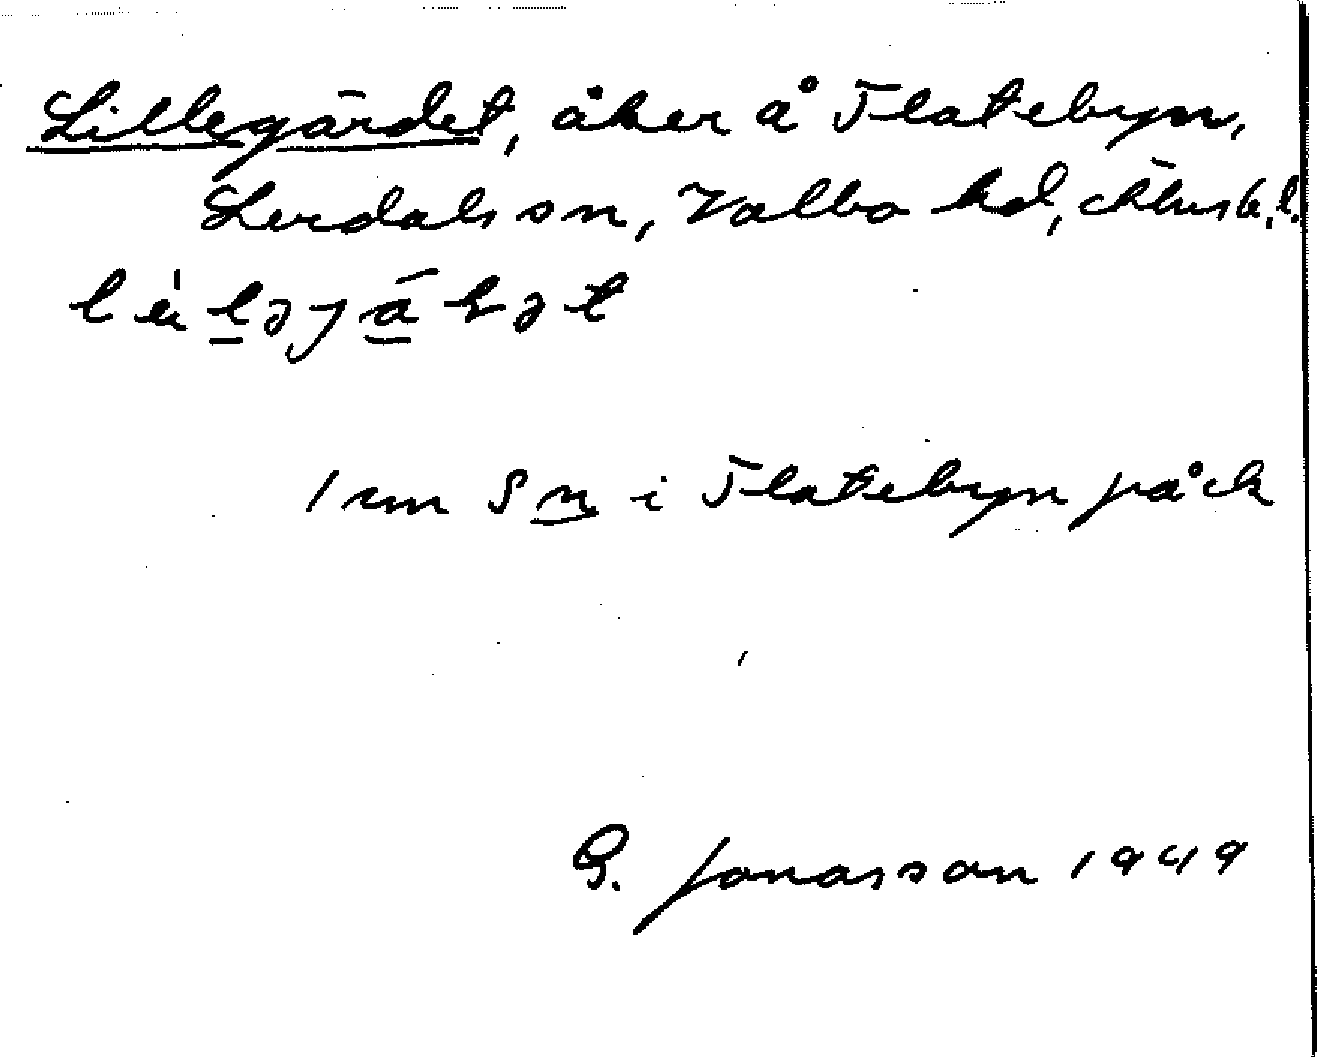 Lillegärdet, åker å Flatebyn,
Lerdals sn, Valbo hd, Älvsb. l.
1 cm S n i Flatebyn på ck
G. Jonasson 1949